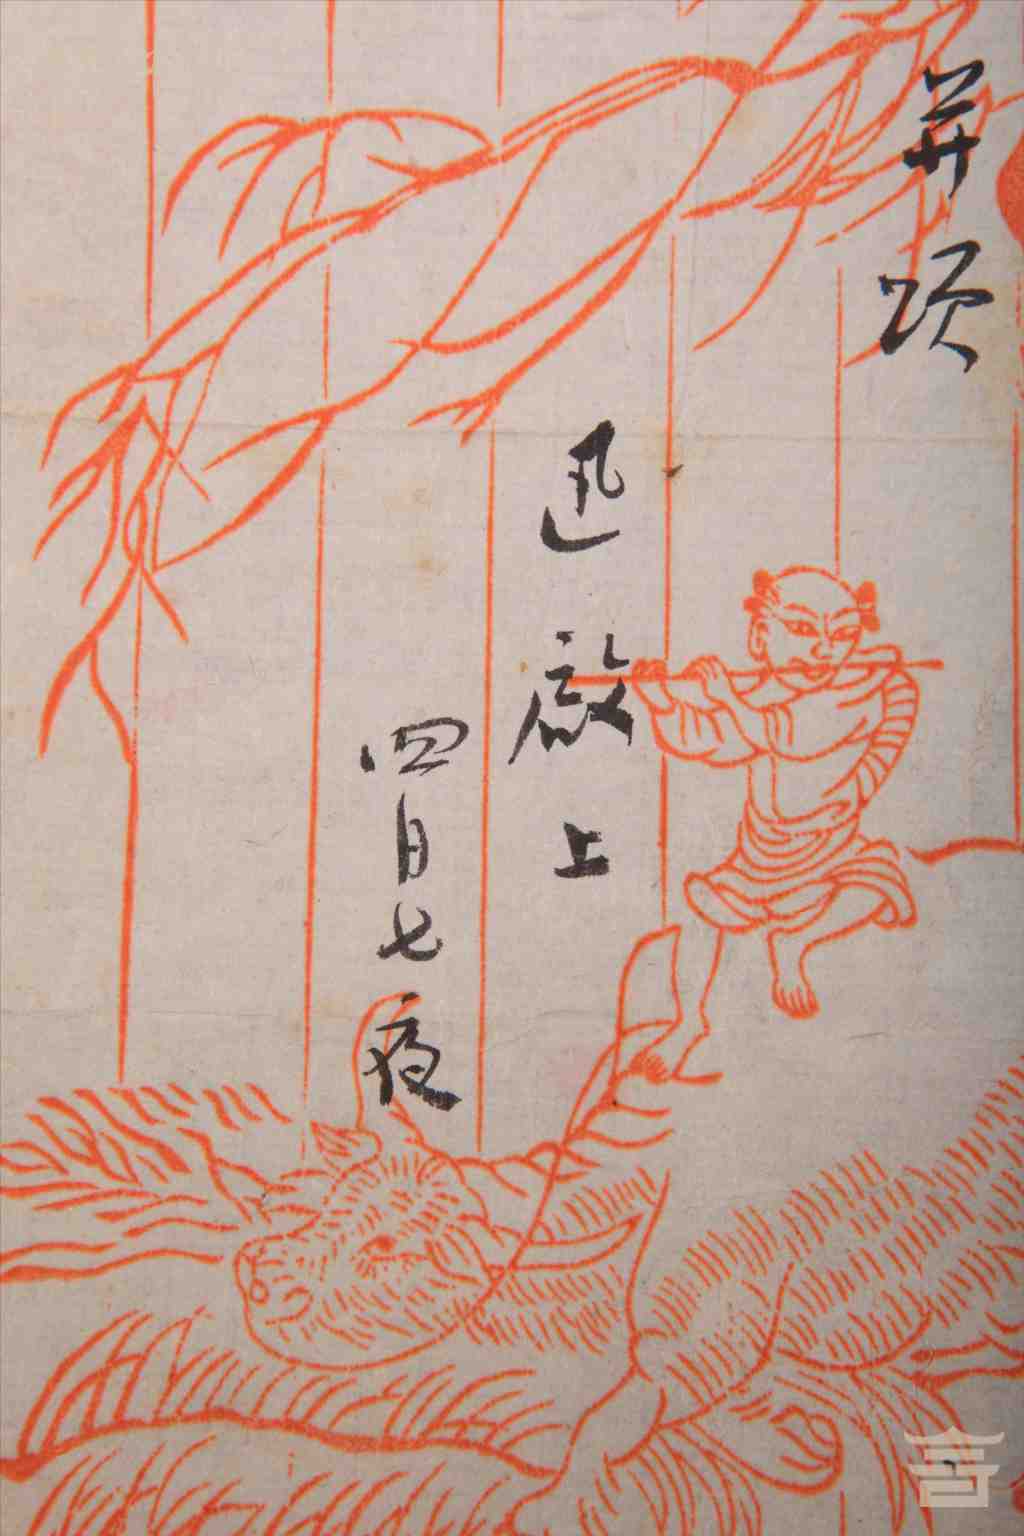 并頌
迅啟上
四月七夜